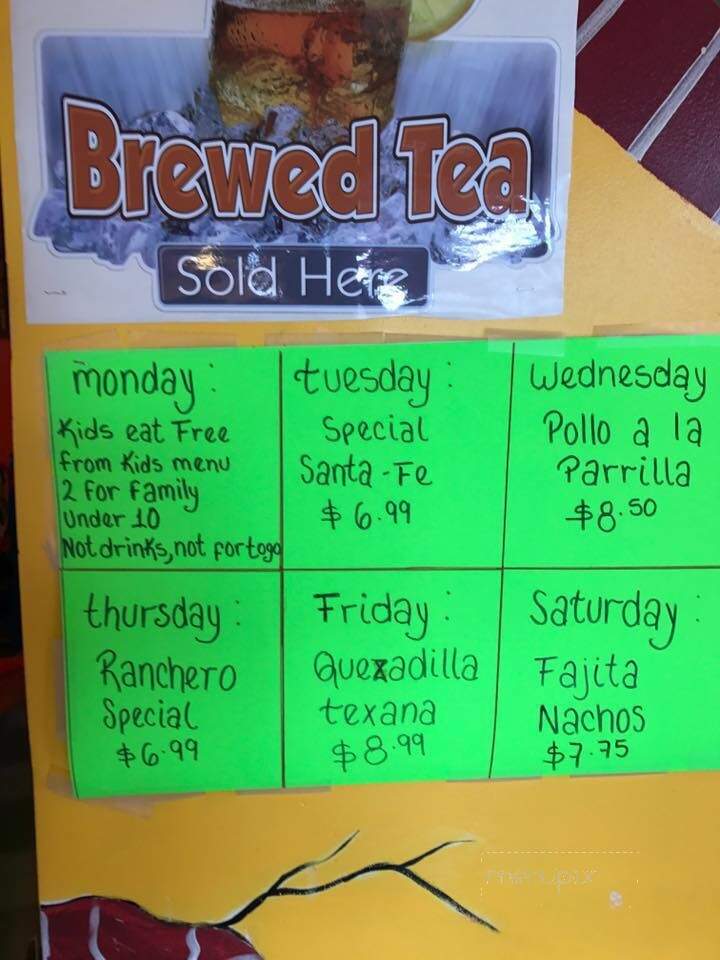 Brewed Tea
Sold Here
monday:
Kids eat Free
from Kids menu
2 For Family
under 10
Not drinks, not for togo
tuesday:
Special
Santa-Fe
$ 6.99
Wednesday
Pollo a la
Parrilla
$8.50
thursday:
Ranchero
Special
$6.99
Friday:
Quexadilla
texana
$8.99
Saturday:
Fajita
Nachos
$7.75
menupix